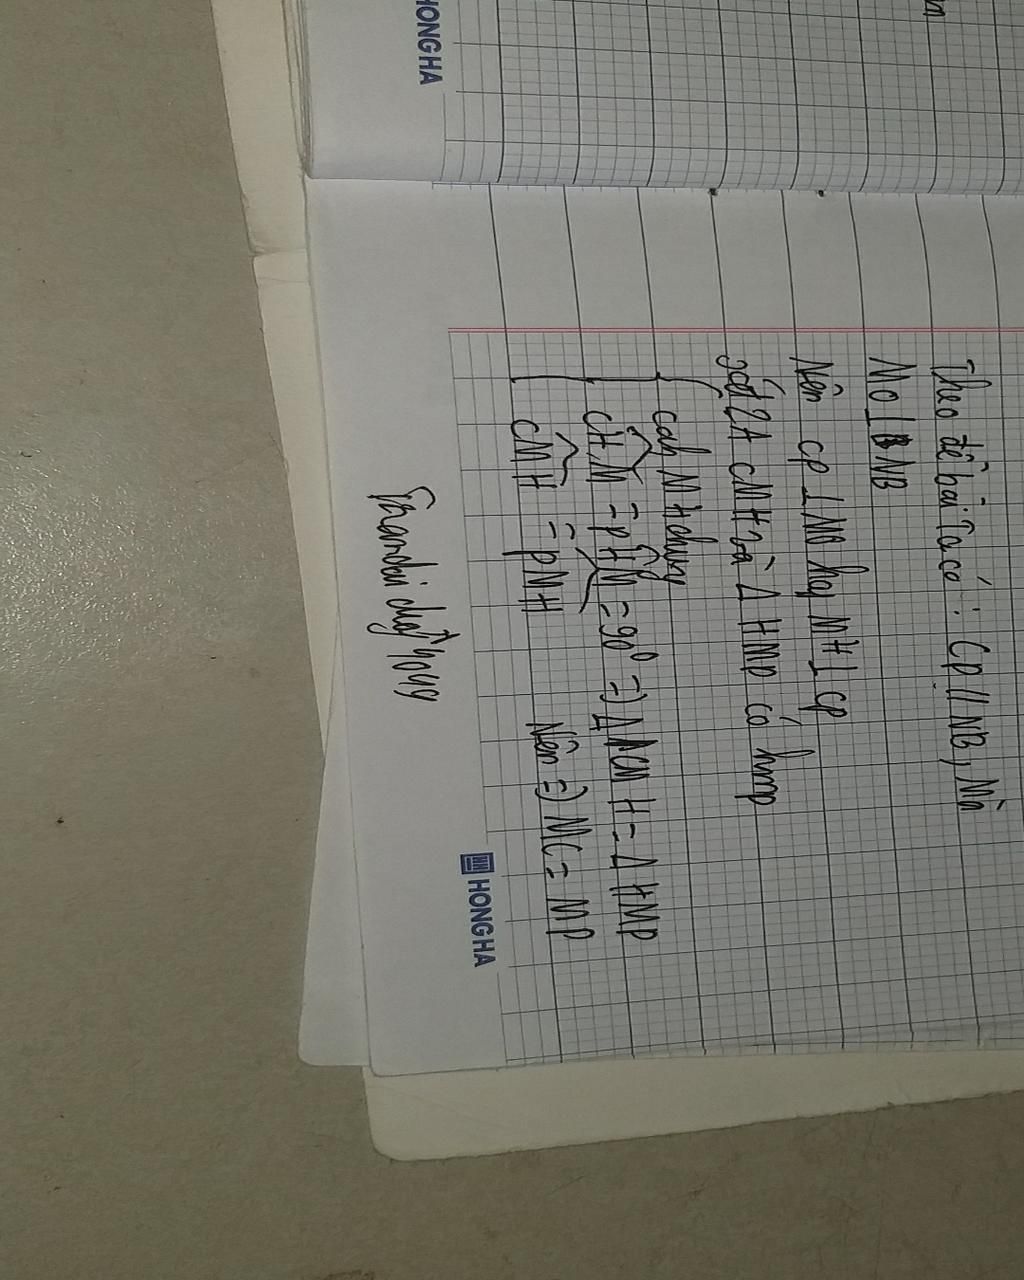 HONG HA
Theo đề bài Ta có : CP // NB, Mà
MO ⊥ NB
Nên CP ⊥ MO hay MH ⊥ CP
xét 2Δ CMH và Δ HMP có
cạh MH chung
CHM = PHM = 90° => Δ CMH = Δ HMP
CMH = PMH
Nên => MC = MP
HONG HA